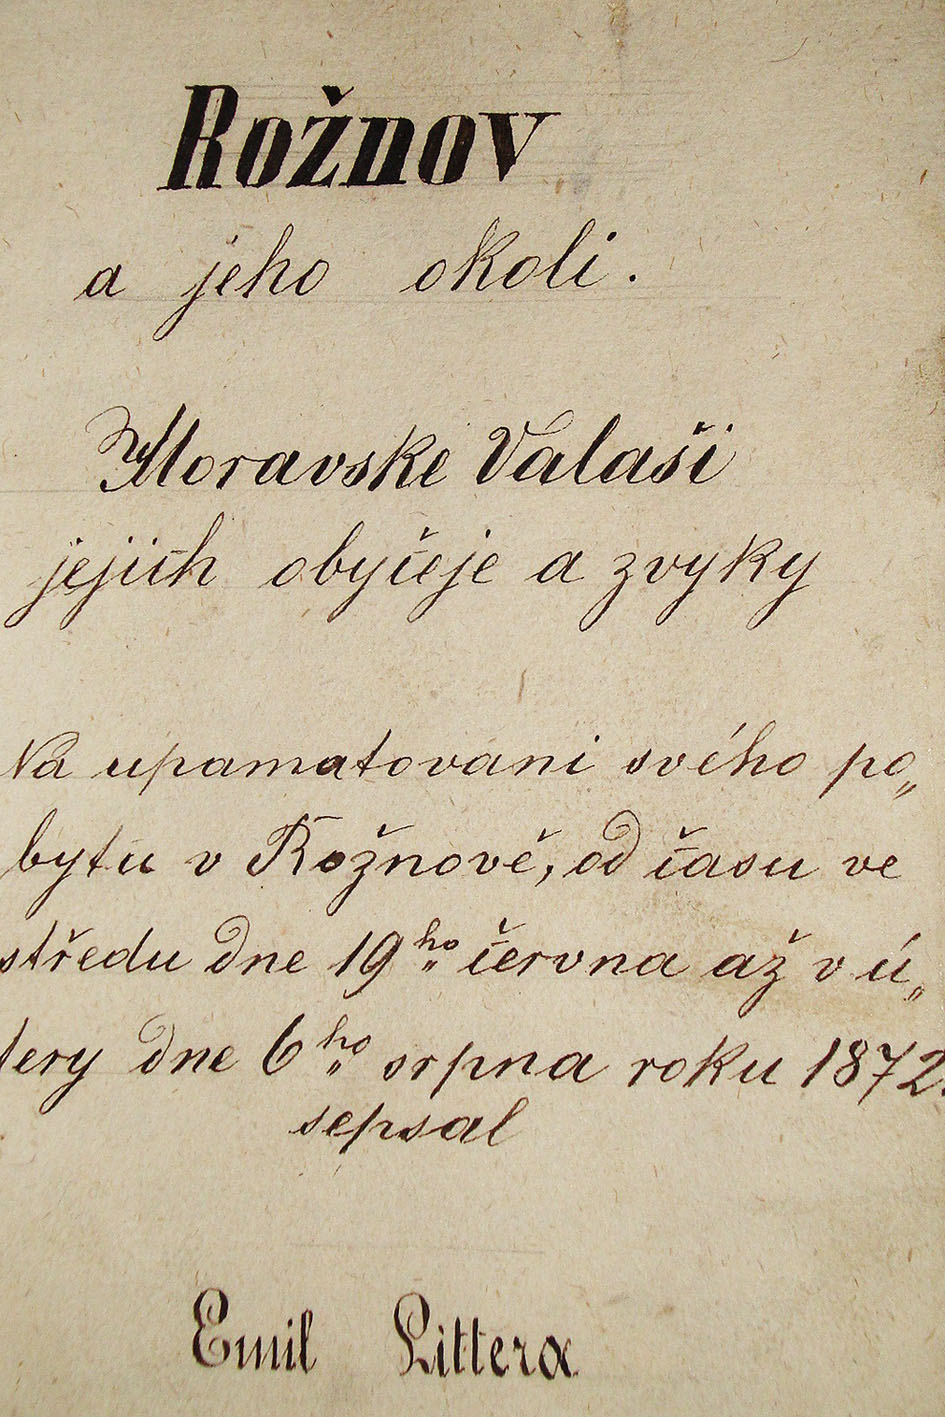 Rožnov
a jeho okoli.
Moravske Valaši
jejich obyčeje a zvyky
Na upamatovani svého po„
bytu v Rožnově, od času ve
středu dne 19ho června až v ú„
tery dne 6ho srpna roku 1872.
sepsal
Emil Littera